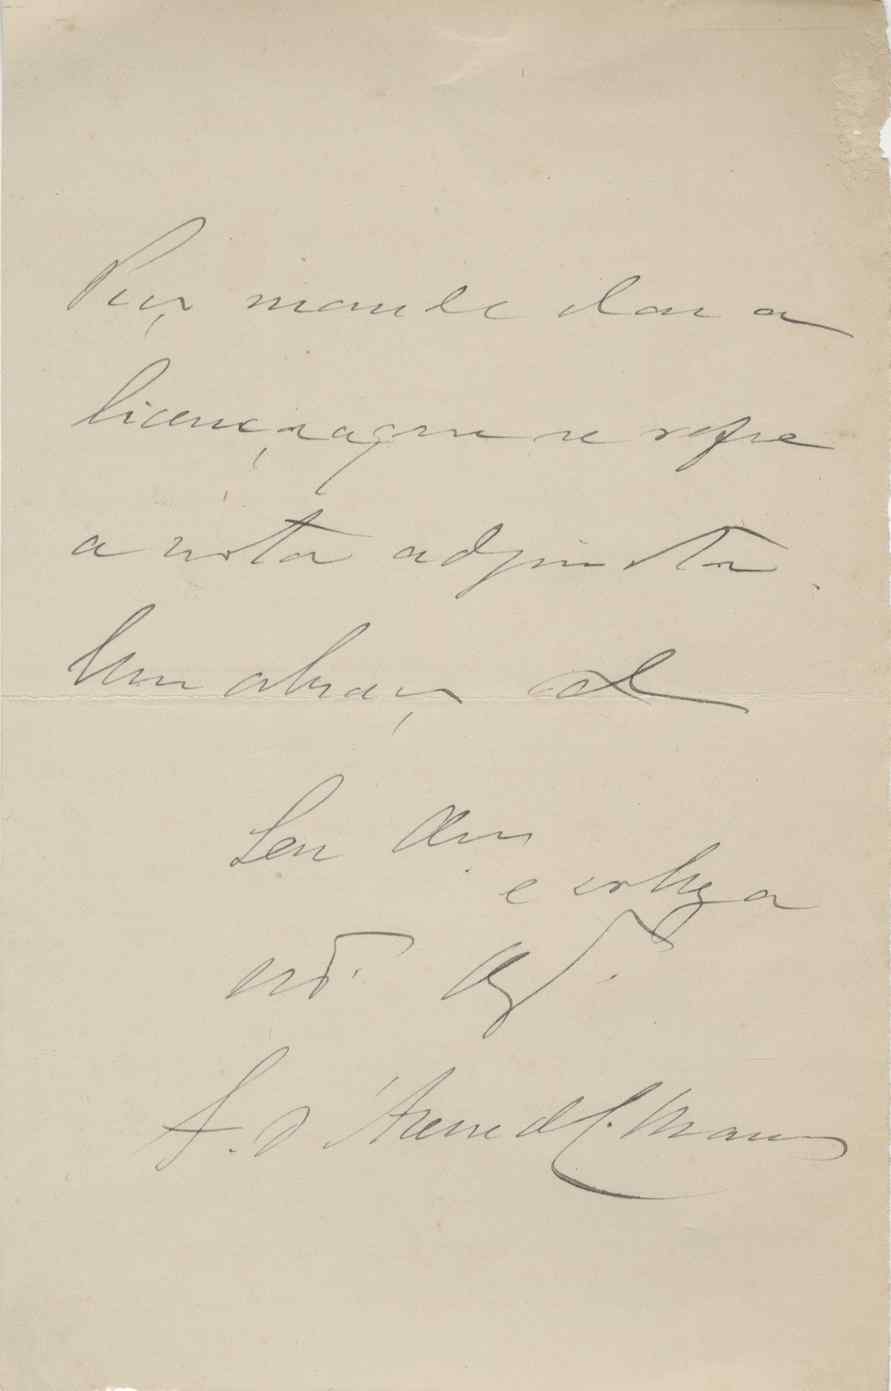 Peço mande dar a
licença a que se refere
a nota adjunta.
Um abraço do
Seu Amº
e collega
A. d'Azevedo C. Branco